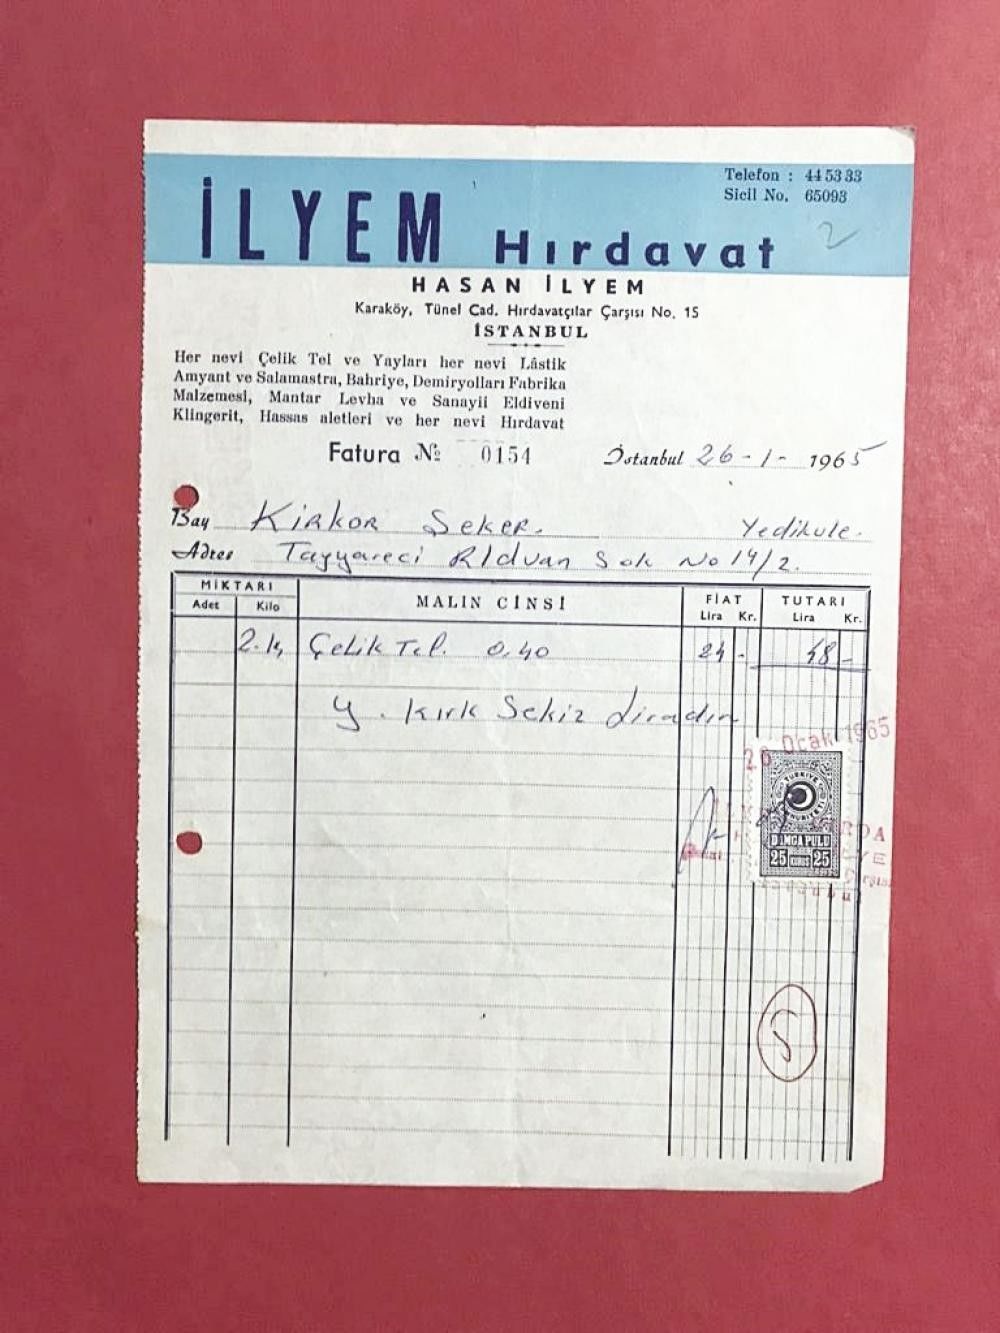 Telefon : 44 53 33
Sicil No. 65093
2
İLYEM Hırdavat
HASAN İLYEM
Karaköy, Tünel Cad. Hırdavatçılar Çarşısı No. 15
İSTANBUL
Her nevi Çelik Tel ve Yayları her nevi Lâstik
Amyant ve Salamastra, Bahriye, Demiryolları Fabrika
Malzemesi, Mantar Levha ve Sanayii Eldiveni
Klingerit, Hassas aletleri ve her nevi Hırdavat
Fatura № 0154 İstanbul 26-1-1965
Bay Kirkor Şeker. Yedikule.
Adres Tayyareci Rıdvan Sok No 14/2.
MİKTARI MALIN CİNSİ FİAT TUTARI
Adet Kilo Lira Kr. Lira Kr.
2.k, Çelik Tel. 0.40 24 - 48 -
y. kırk Sekiz Liradır
26 Ocak 1965
TÜRKİYE
DAMGA PULU
25 KURUŞ 25
5